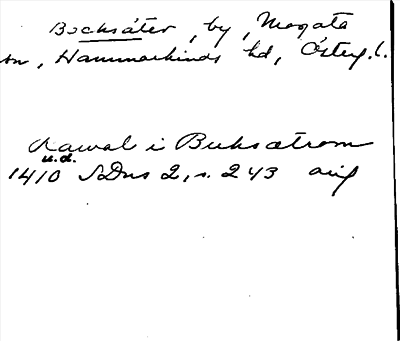 Bocksäter, by, Mogata
sn, Hammarkinds hd, Östeg.l.
Rawal i Buksætrom
u.d.
1410 SDns 2, s. 243 avig